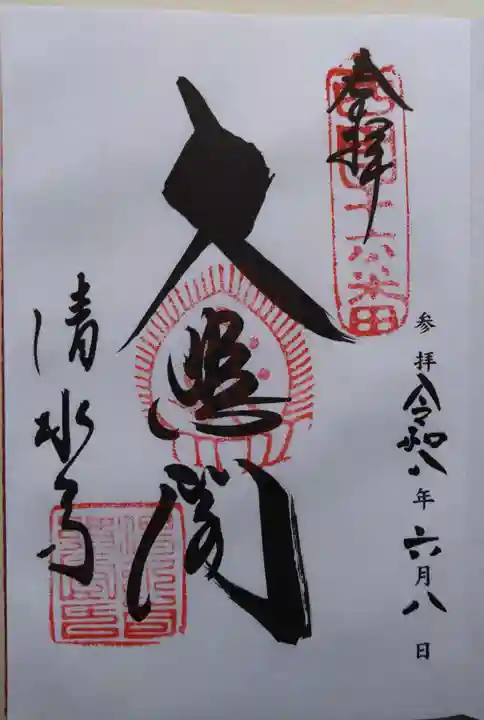 奉拝
西国十六番
参拝 令和八年六月八日
大悲閣
清水寺